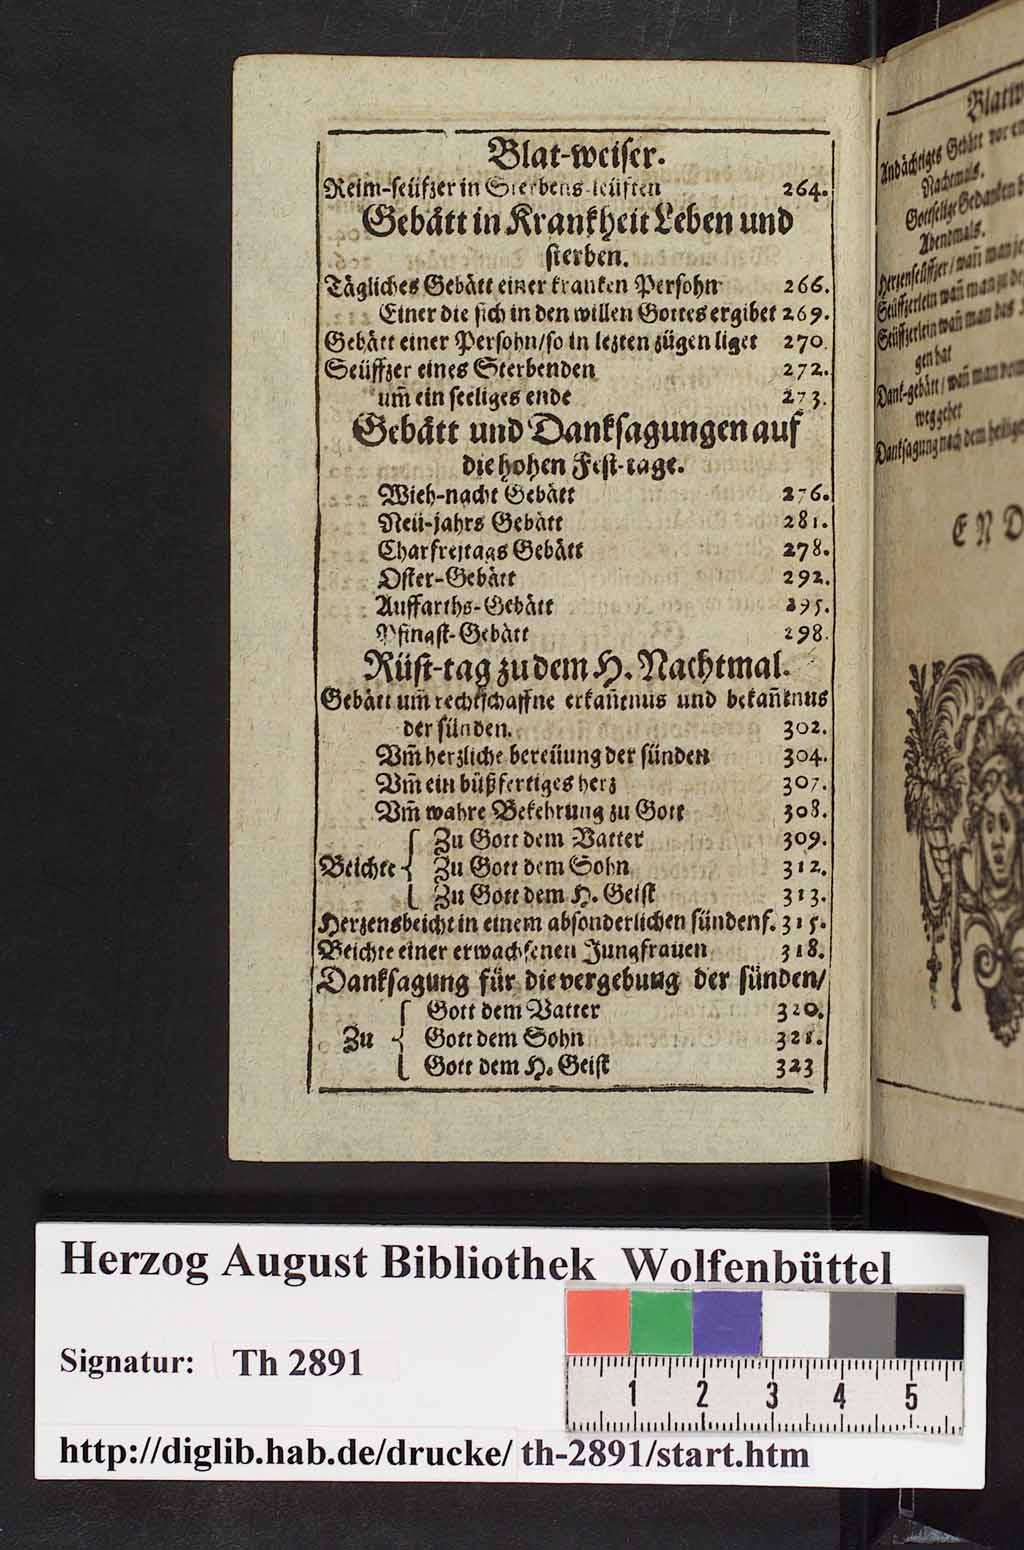 Blat-weiser.
Reim-seüfzer in Sterbens-leüften 264.
Gebätt in Krankheit Leben und
sterben.
Tägliches Gebätt einer kranken Persohn 266.
Einer die sich in den willen Gottes ergibet 269.
Gebätt einer Persohn/so in lezten zügen liget 270.
Seüffzer eines Sterbenden 272.
um̃ ein seeliges ende 273.
Gebätt und Danksagungen auf
die hohen Fest-tage.
Wieh-nacht Gebätt 276.
Neü-jahrs Gebätt 281.
Charfreitags Gebätt 278.
Oster-Gebätt 292.
Auffarths-Gebätt 295.
Pfingst-Gebätt 298.
Rüst-tag zu dem H. Nachtmal.
Gebätt um̃ rechtschaffne erkañtnus und bekañtnus
der sünden. 302.
Vm̃ herzliche bereüung der sünden 304.
Vm̃ ein büßfertiges herz 307.
Vm̃ wahre Bekehrung zu Gott 308.
Zu Gott dem Vatter 309.
Beichte { Zu Gott dem Sohn 312.
Zu Gott dem H. Geist 313.
Herzensbeicht in einem absonderlichen sündenf. 315.
Beichte einer erwachsenen Jungfrauen 318.
Danksagung für die vergebung der sünden/
Gott dem Vatter 320.
Zu { Gott dem Sohn 321.
Gott dem H. Geist 323
Blatw
Andächtiges Gebätt vor em
Nachtmals.
Gottselige Gedanken b
Abendmals.
Herzenseüffzer/wañ man je
Seüffzerlein wañ man zu de
Seüffzerlein wañ man das
gen hat
Dank-gebätt/wañ man vom
weg gehet
Danksagung nach dem heilige
E N D
Herzog August Bibliothek Wolfenbüttel
Signatur: Th 2891
1 2 3 4 5
http://diglib.hab.de/drucke/ th-2891/start.htm